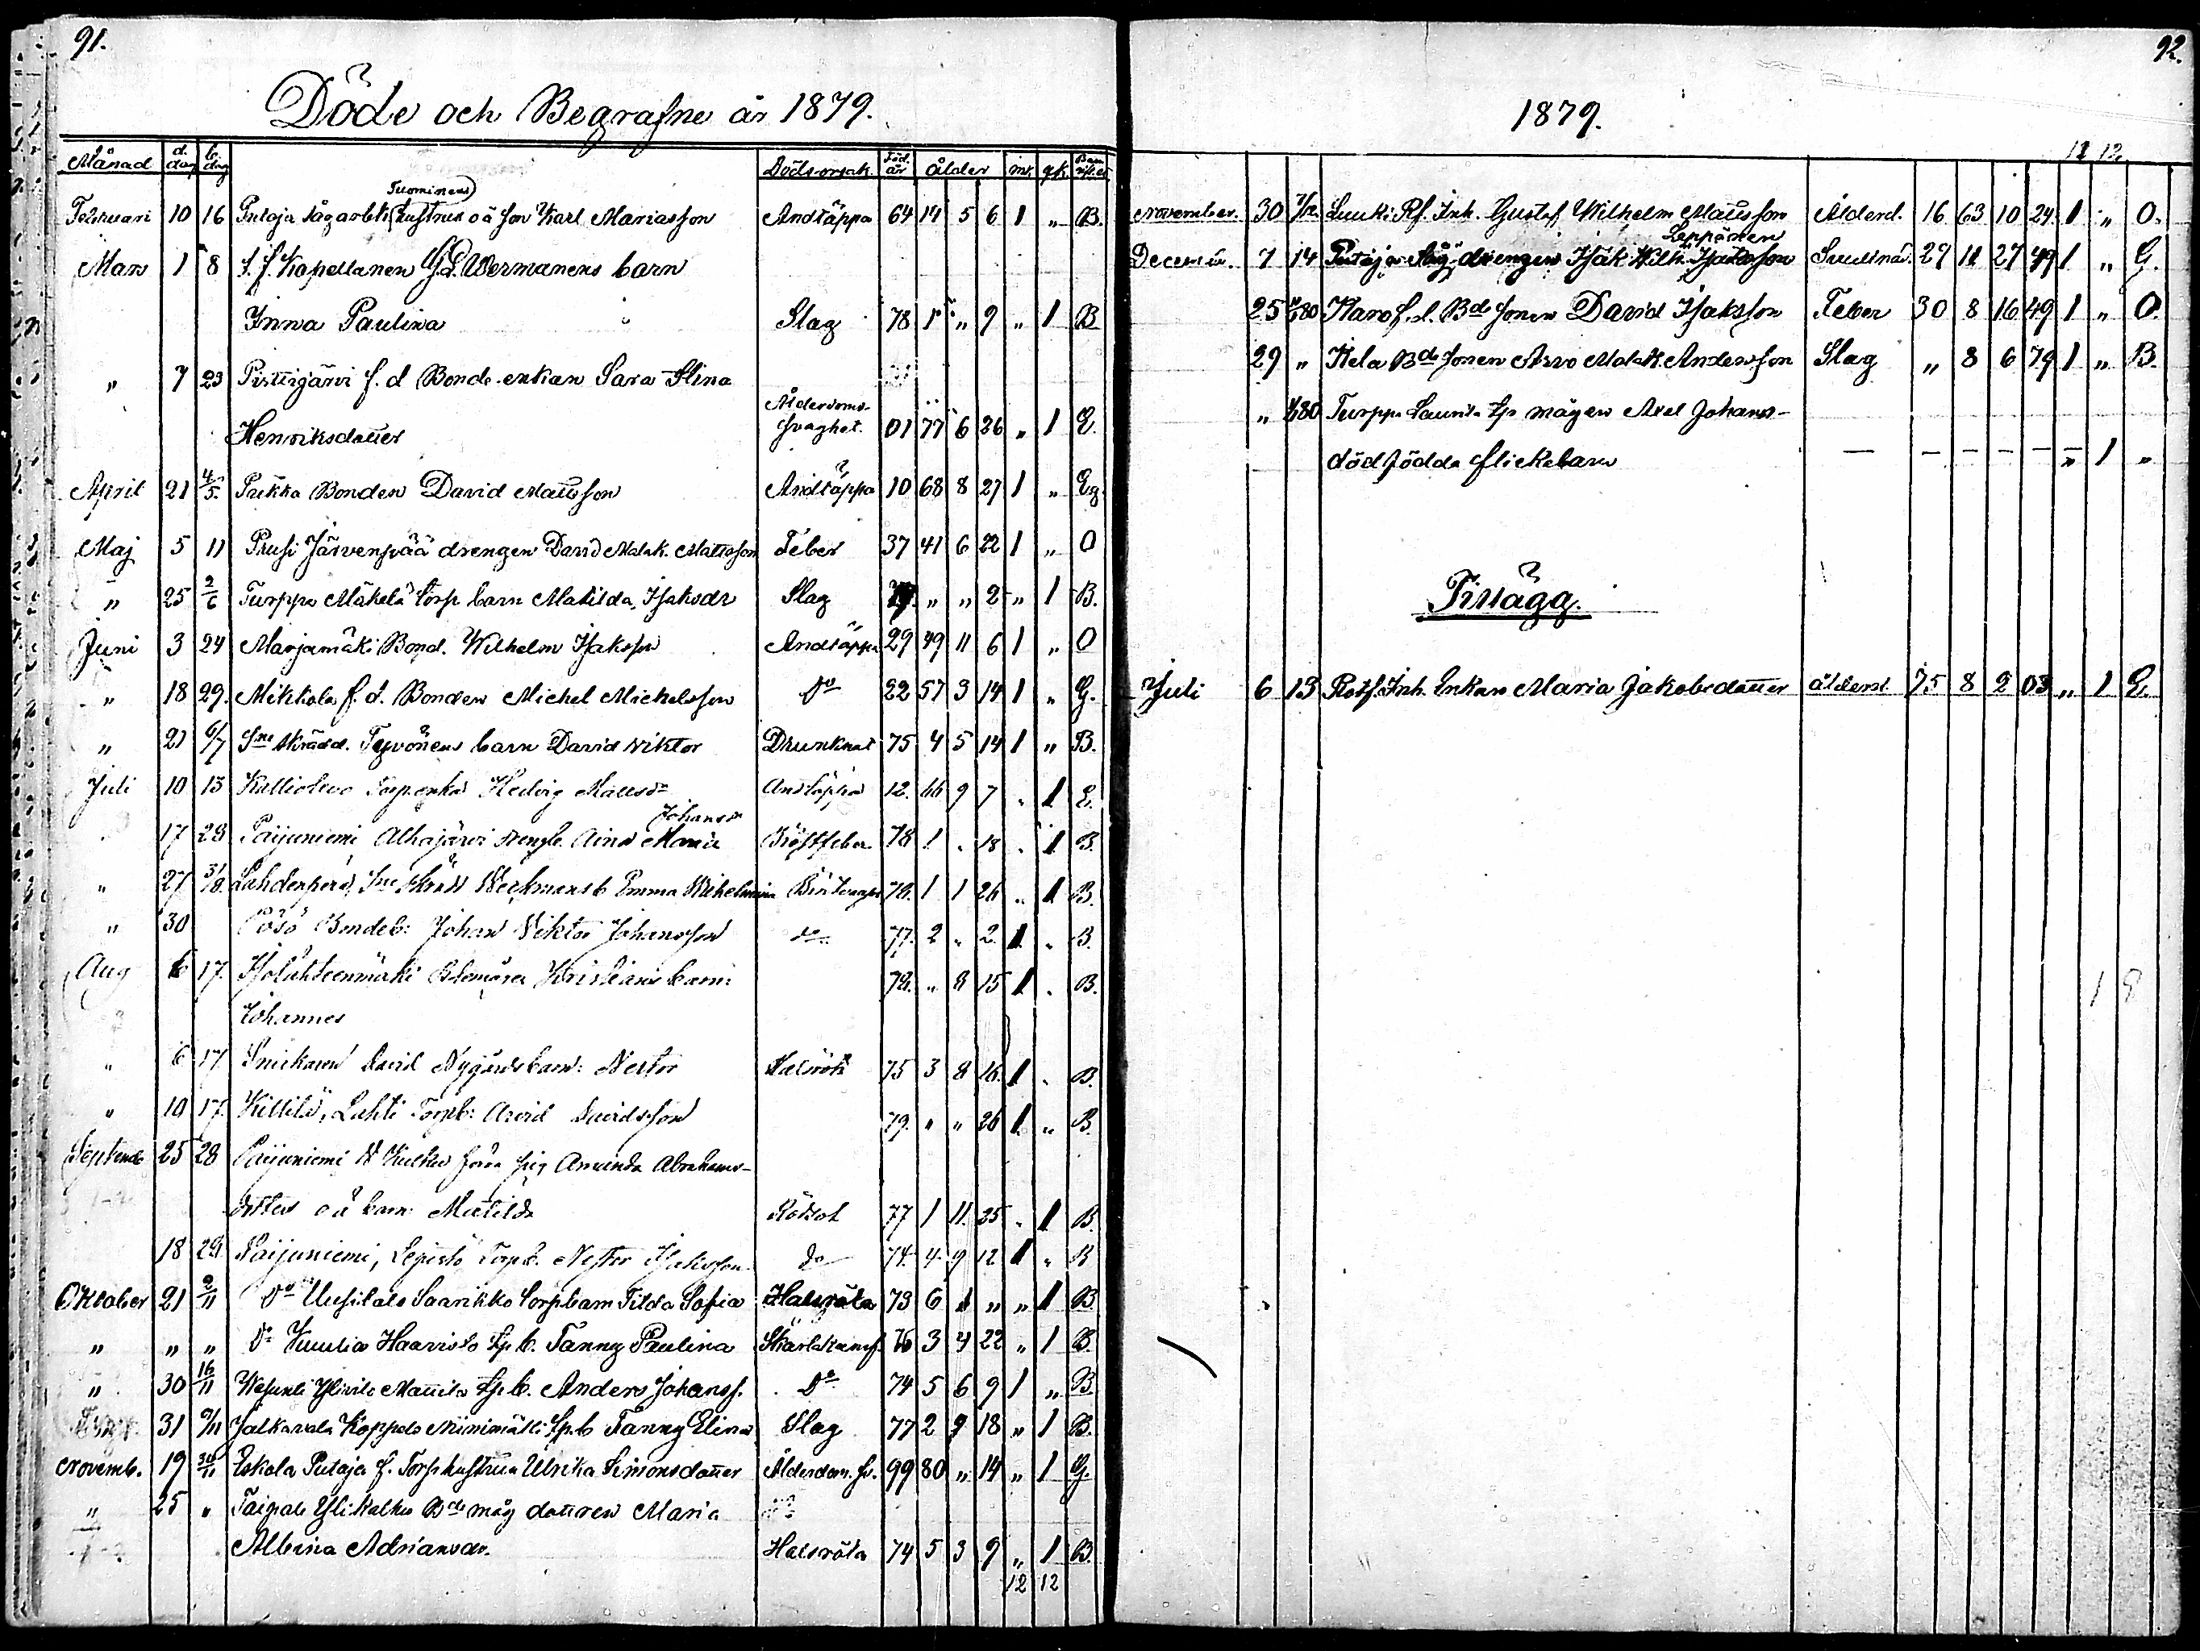 91.
Döde och Begrafne år 1879.
Månad d. dag b. dag Dödsorsak Föd. år ålder mk. qk.
Tuominens
Februari 10 16 Putaja sågarbet: hustrus oä son Karl Mariasson Andtäppa 64 14 5 6 1 „ B.
Mars 1 8 S. f. Kapellanen G. Wermanens barn
Inna Paulina Slag 78 1 „ 9 „ 1 B
„ 7 23 f. d Bonde-enkan Sara Stina
Henriksdotter Ålderdoms-svaghet. 01 77 6 26 „ 1 E.
April 21 4/5. Pukka Bonden David Mattsson Andtäppa 10 68 8 27 1 „ Eg.
Maj 5 11 Prusi Järvenpää drengen David Malak. Mattsson Feber 37 41 6 22 1 „ O
„ 25 2/6 Turppa Mäkelä torp barn Matilda Isaksdr Slag 79 „ „ 2 „ 1 B.
Juni 3 24 Marjamäki Bond. Wilhelm Isaksson Andtäppa 29 49 11 6 1 „ O
„ 18 29. Mikkola f. d. Bonden Michel Michelsson Do 22 57 3 14 1 „ G.
„ 21 6/7 Sne skrädd. Typönens barn David Viktor Drunknat 75 4 5 14 1 „ B.
Juli 10 13 Torpenka Hedvig Mattsdr Andtäppa 12. 66 9 7 „ 1 E.
Johansdr
17 28 Paijuniemi Alhajärvi Aina Maria Bröstfeber 78 1 „ 18 „ 1 B.
„ 27 3/8. Lahdenperä, Sne Weckmans b Emma Wilhelmina 78. 1 1 26 „ 1 B.
„ 30 Pösö Bondeb: Johan Viktor Johansson do 77. 2 „ 2. 1 „ B.
Aug 6 17. Isolähteenmäki Kristians barn: 78. „ 8 15 1 „ B.
Johannes
„ 6 17. Snickaren David Nygårds barn: Nestor Halsröta 75 3 8 16. 1 „ B.
„ 10 17. Killilä, Lahti Torpb: Arvid Davidsson 79. „ „ 26 1 „ B.
Septemb 25 28 Paijuniemi Amanda Abrahams-
dotters oä barn Matilda Rödsot 77 1 11. 25 „ 1 B.
18 29 Paijuniemi, Seppälä Torpb. Nestor Isaksson. do 74. 4. 9 12 1 „ B
Oktober 21 2/11 Do Uusitalo Saarikko torpbarn Tilda Sofia Halsröta 73 6 1 „ „ 1 B
„ „ „ Do Haavisto tp b. Fanny Paulina Skarlakansf. 76 3 4 22 „ 1 B.
„ 30 16/11 Wesunti Mattila tp b. Anders Johanss. Do 74 5 6 9 1 „ B.
31 9/11 Jalkavala Koppelo Niinimäki tp.b Fanny Elina Slag 77 2 9 18 „ 1 B.
Novemb. 19 30/11 Eskola Putaja f. Torphustrun Ulrika Simonsdotter Ålderdom. sv. 99 80 „ 14 „ 1 G.
„ 25 „ Taipale Ylikalku Bde måg dottren Maria
Albina Adriansdr. Halsröta 74 5 3 9 „ 1 B.
12 12
92.
1879.
11 12
November. 30 7/12 Luuki Rf. Inh. Gustaf Wilhelm Mattsson Ålderd. 16 63 10 24 1 „ O.
Leppänen
December. 7 14 Putaja Såg-drengen Isak Wilh. Isaksson 29 11 27 49 1 „ G.
25 Karo f. d. Bde sonen David Isaksson Feber 30 8 16 49 1 „ O.
29 „ Kela Bde sonen Arvo Malak. Andersson Slag „ 8 6 79 1 „ B.
„ 1/80 Turppa Laurila tp mågen Axel Johans-
dödfödda flickebarn — — — — — „ 1 „
Tillägg.
Juli 6 13 Rotf. Inh. Enkan Maria Jakobsdotter ålderd. 75 8 2 03 „ 1 E.